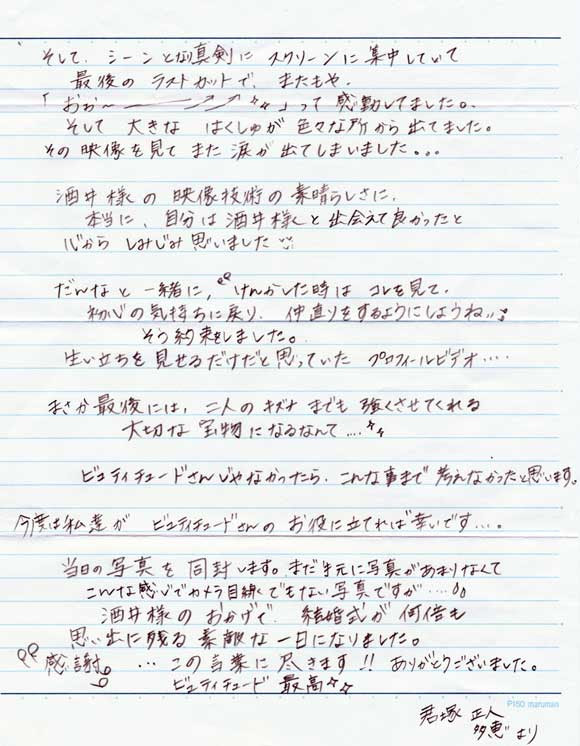 そして、シーンとなり真剣にスクリーンに集中していて
最後のラストカットで、またもや、
「おぉ〜」って感動してました。
そして大きなはくしゅが色々な所から出てました。
その映像を見てまた涙が出てしまいました。。。
酒井様の映像技術の素晴らしさに、
本当に、自分は酒井様と出会えて良かったと
心からしみじみ思いました
だんなと一緒に、けんかした時はコレを見て、
初心の気持ちに戻り、仲直りをするようにしようね♪
そう約束をしました。
生い立ちを見せるだけだと思っていたプロフィールビデオ‥‥
まさか最後には、二人のキズナまでも強くさせてくれる
大切な宝物になるなんて‥‥
ビュティチュードさんじゃなかったら、こんな事まで考えなかったと思います。
今度は私達がビュティチュードさんのお役に立てれば幸いです…。
当日の写真を同封します。まだ手元に写真があまりなくて
こんな感じでカメラ目線でもない写真ですが‥‥
酒井様のおかげで、結婚式が何倍も
思い出に残る素敵な一日になりました。
感謝。…この言葉に尽きます!!ありがとうございました。
ビュティチュード最高
P150 maruman
君塚 正人
多恵より